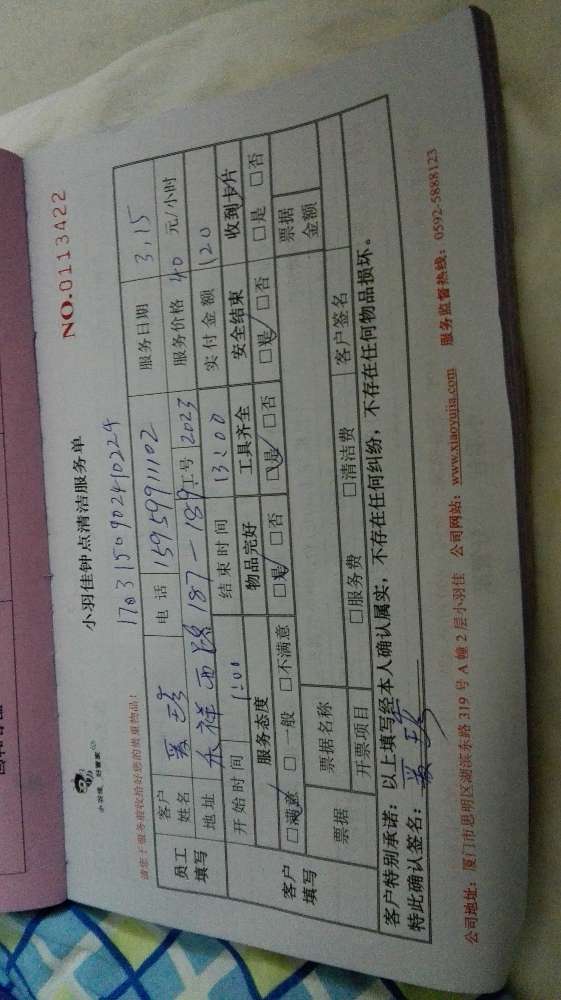 NO.0113422
小羽佳钟点清洁服务单
1703150902410224
小羽佳，好管家
请您：服务前收拾好您的贵重物品！
员工填写 客户姓名 电话 15959911102 服务日期 3.15
地址 禾祥西路187-189 工号 2023 服务价格 40 元/小时
开始时间 1:00 结束时间 13:00 实付金额 120
客户填写 服务态度 物品完好 工具齐全 安全结束 收到卡片
□满意 □一般 □不满意 □是 □否 □是 □否 □是 □否 □是 □否
票据 票据名称 票据金额
开票项目 □服务费 □清洁费 客户签名
客户特别承诺：以上填写经本人确认属实，不存在任何纠纷，不存在任何物品损坏。
特此确认签名：
公司地址：厦门市思明区湖滨东路 319 号 A 幢 2 层小羽佳 公司网站：www.xiaoyujia.com 服务监督热线：0592-5888123